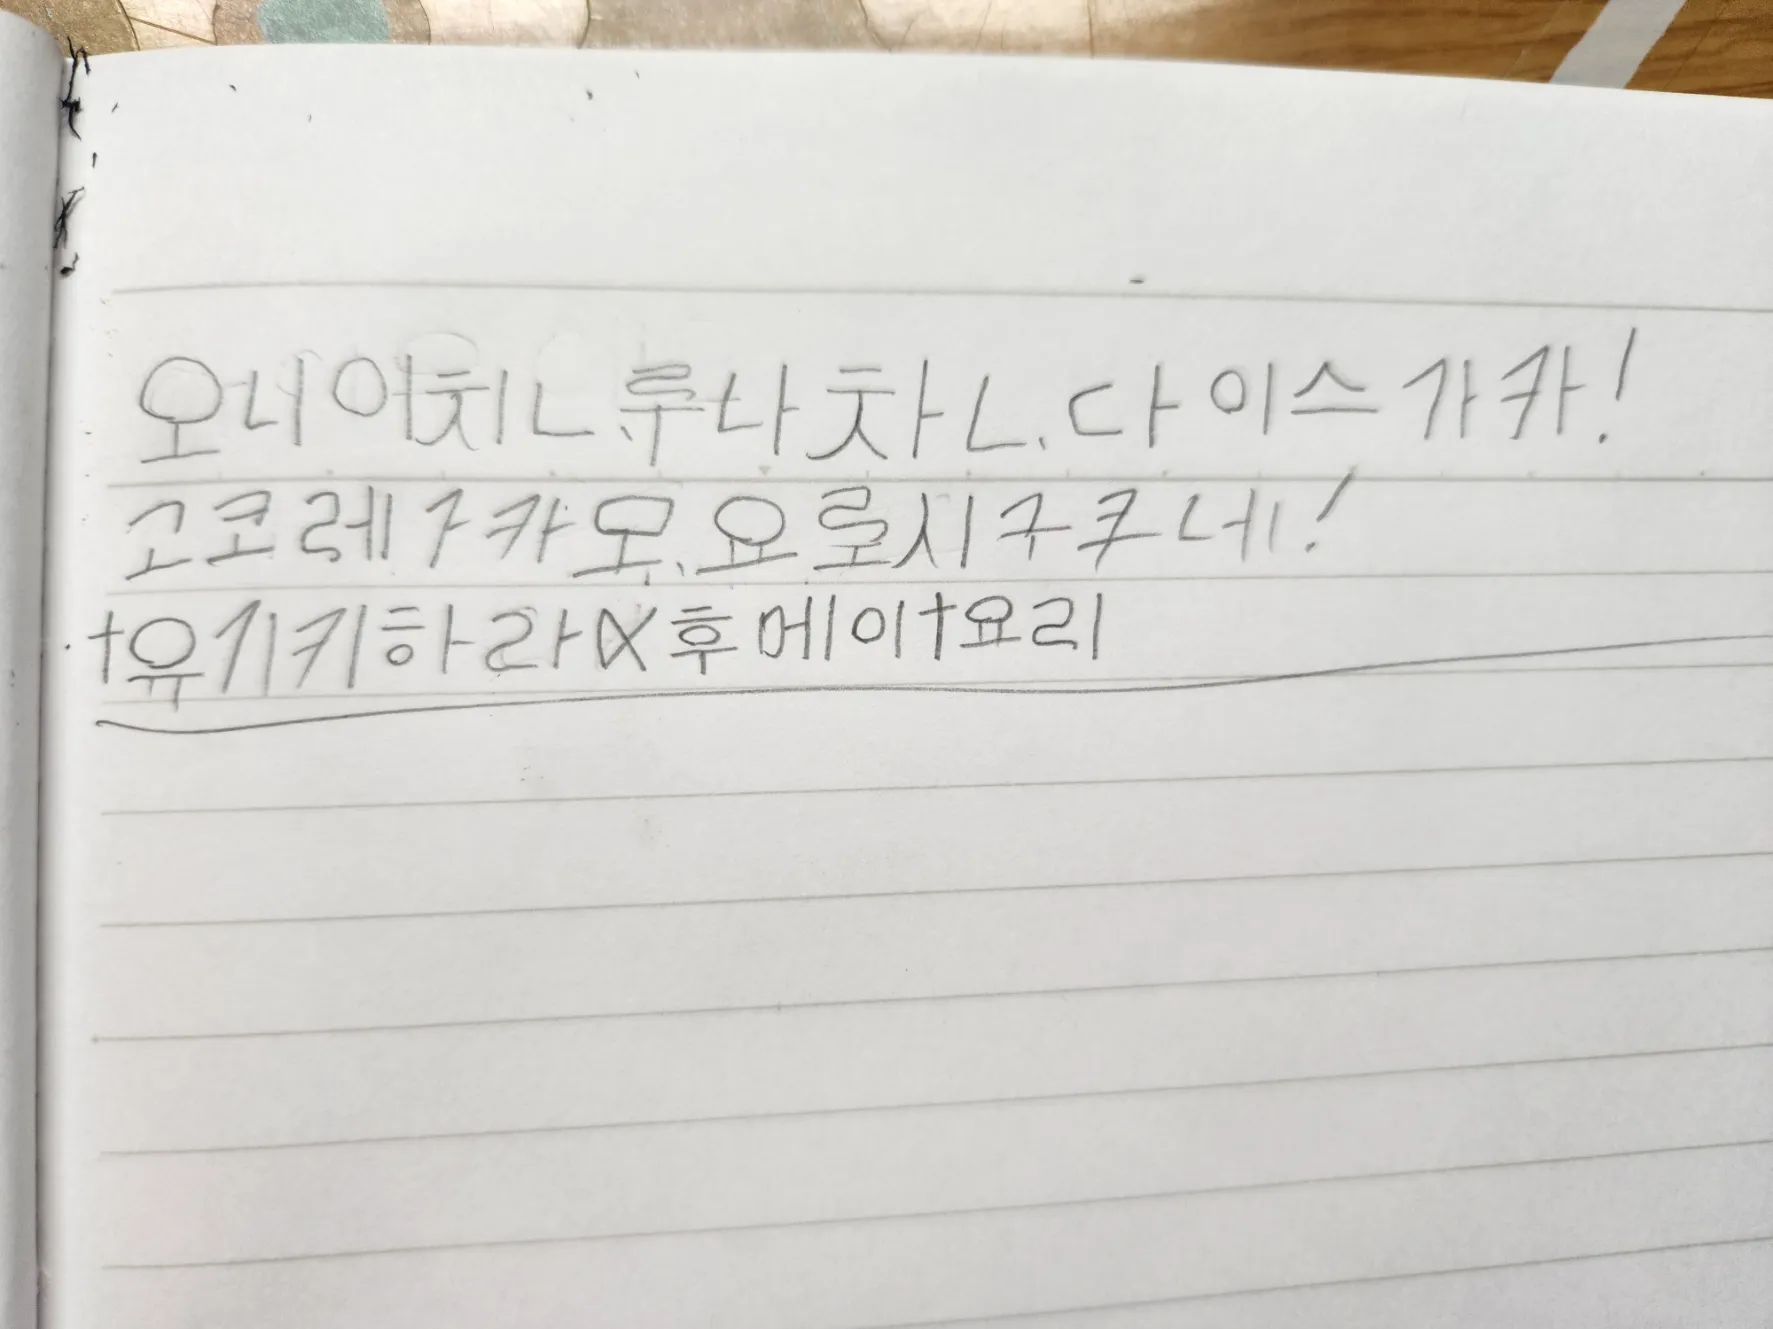 오니이치ㄴ、루나차ㄴ、다이스가카!
고코레가카모、요로시구쿠네!
†유기키하라α후메이†요리